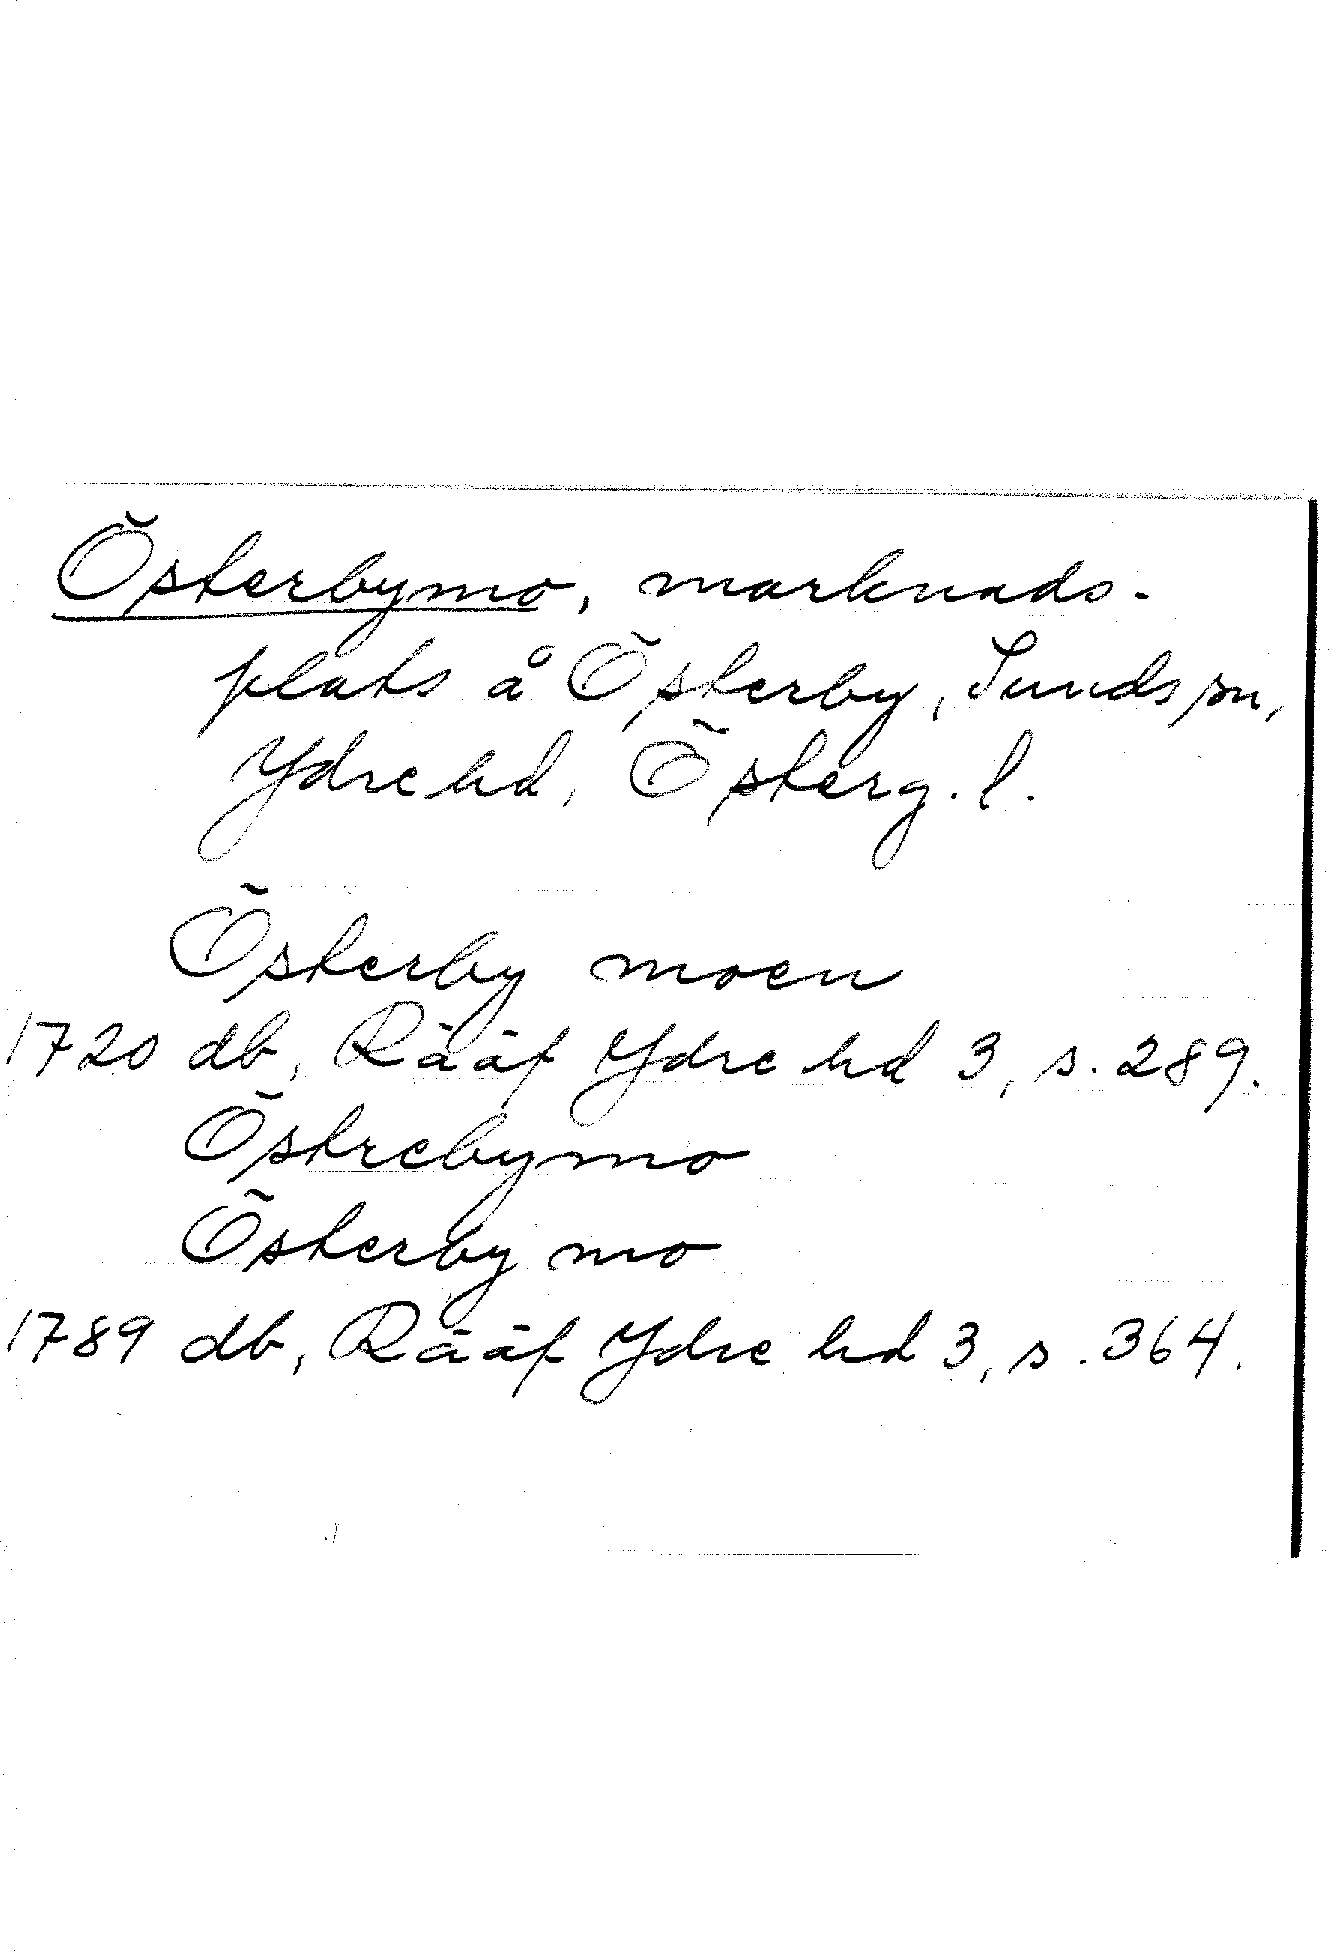 Österbymo, marknads-
plats å Österby, Sunds sn,
Ydre hd, Österg. l.
Österby moen
1720 db, Rääf Ydre hd 3, s. 289.
Östrebymo
Österby mo
1789 db, Rääf Ydre hd 3, s. 364.